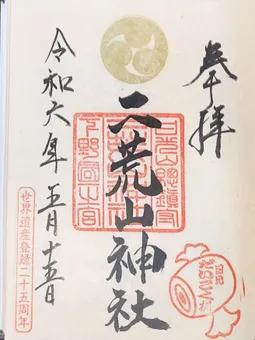 奉拝
日光山總鎮守
二荒山神社
下野國一之宮
令和六年五月十五日
世界遺産登録二十五周年
日光